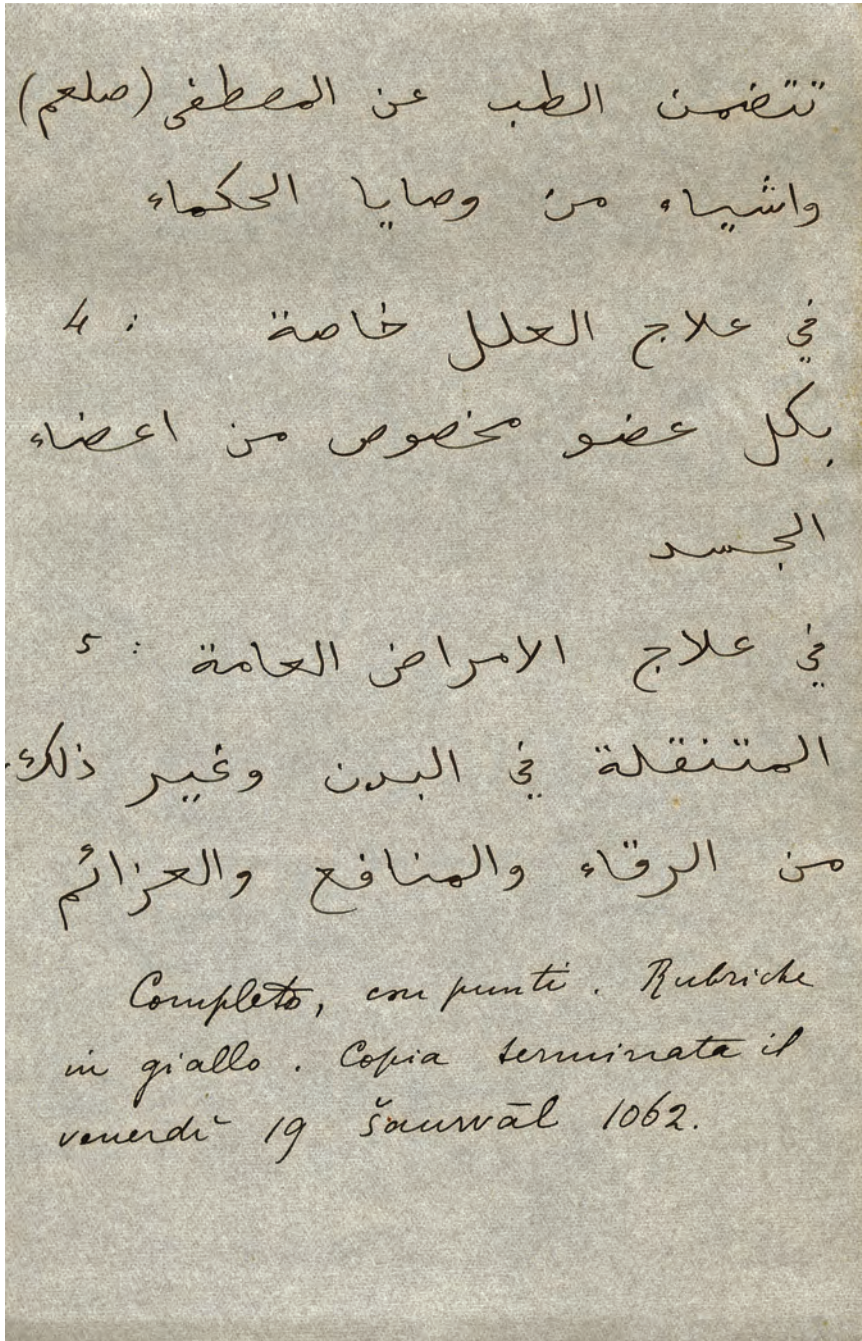 تتضمن الطب عن المصطفى (صلعم)
واشياء من وصايا الحكماء
4 : في علاج العلل خاصة
بكل عضو مخصوص من اعضاء
الجسد
5 : في علاج الامراض العامة
المتنقلة في البدن وغير ذلك
من الرقاء والمنافع والعزائم
Completo, con punti. Rubriche
in giallo. Copia terminata il
venerdì 19 šauwāl 1062.